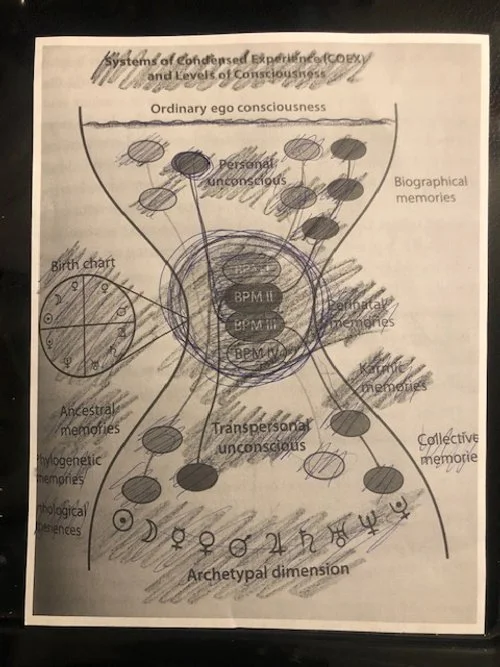 Systems of Condensed Experience (COEX)
and Levels of Consciousness
Ordinary ego consciousness
Personal
unconscious
Biographical
memories
Birth chart
BPM I
BPM II
BPM III
BPM IV
Perinatal
memories
Karmic
memories
Ancestral
memories
Transpersonal
unconscious
Collective
memorie
hylogenetic
memories
hological
eriences
☉ ☽ ☿ ♀ ♂ ♃ ♄ ♅ ♆ ♇
Archetypal dimension